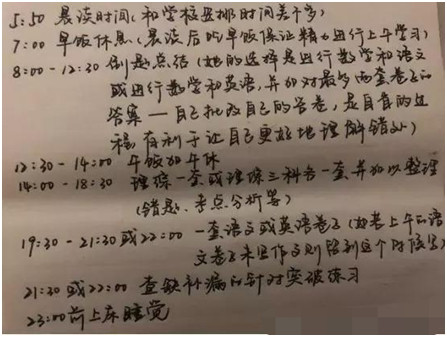 5:50 晨读时间(和学校安排时间差不多)
7:00 早饭休息(晨读后吃早饭保证精力进行上午学习)
8:00-12:30 例题总结(她的选择是进行数学和语文
或进行数学和英语,并核对最多两套卷子的
答案—自己批改自己的答卷,是自查的过
程,有利于让自己更好地理解错处)
12:30-14:00 午饭和午休
14:00-18:30 理综一套或理综三科各一套并加以整理
(错题、考点分析等)
19:30-21:30或22:00 一套语文或英语卷子(如若上午的语
文卷子未写作文则陪到这个时候写)
21:30或22:00 查缺补漏的针对突破练习
23:00前上床睡觉